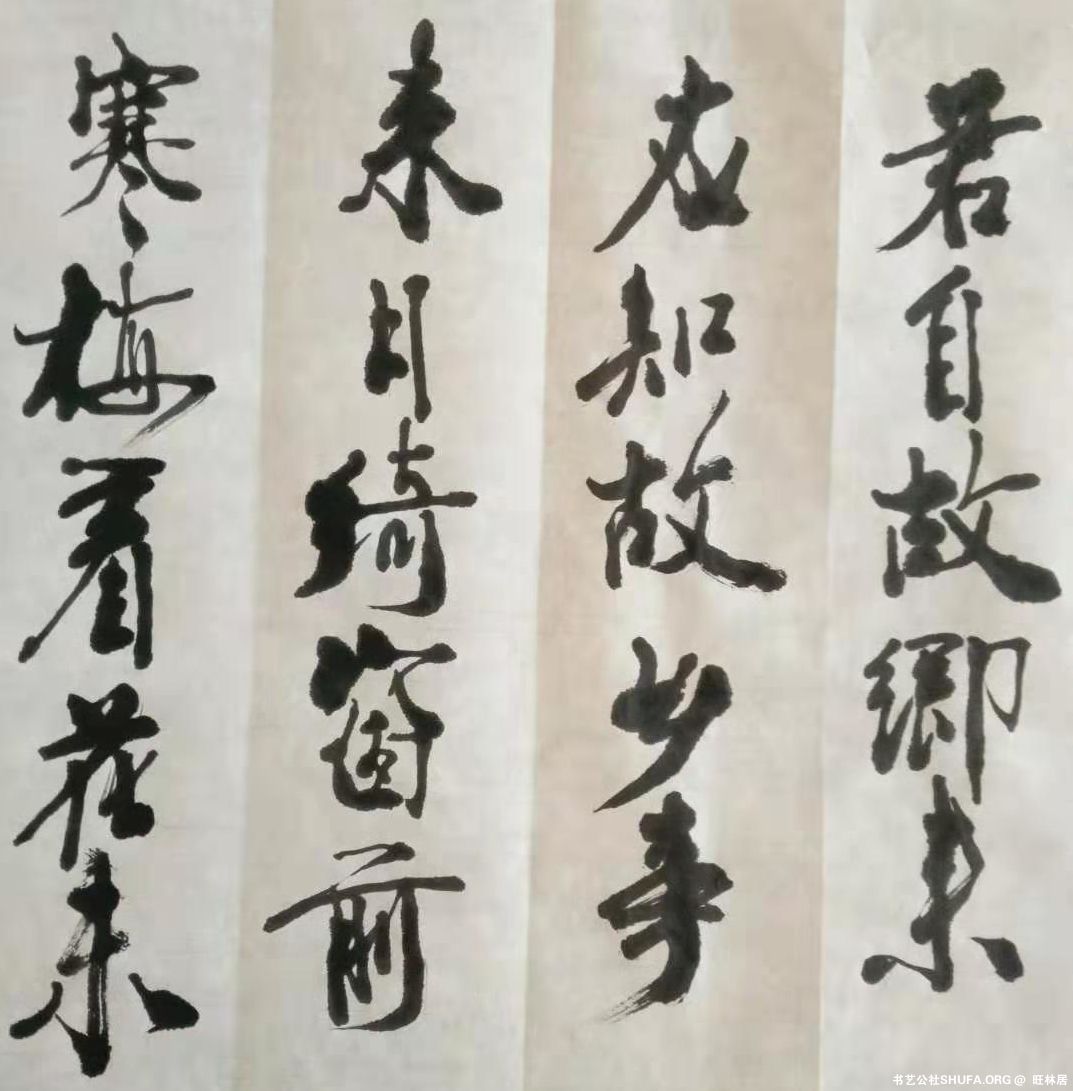 君自故鄉来
应知故乡事
来日綺窗前
寒梅着花未
书艺公社SHUFA.ORG @ 旺林居